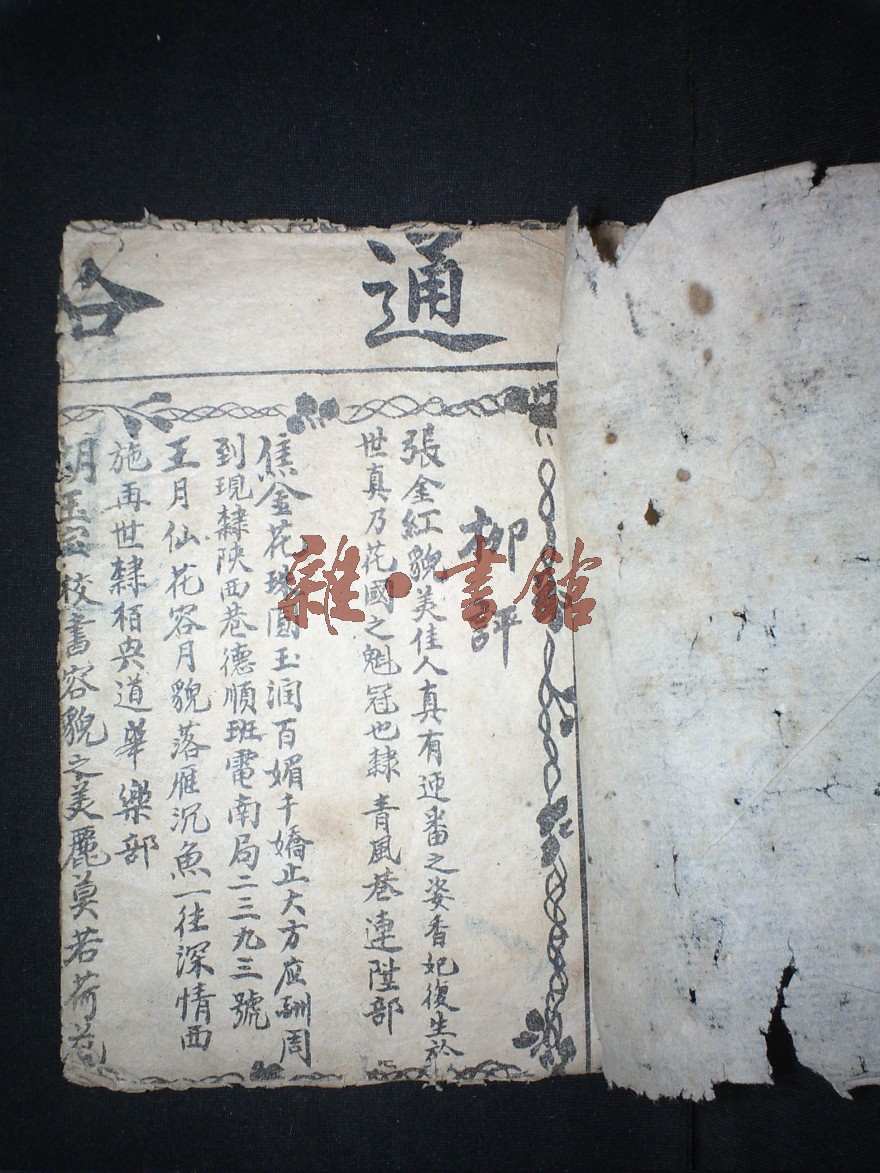 通
柳評
張金紅貌美佳人真有迎番之姿香妃復生於
世真乃花國之魁冠也隸青風巷連陞部
焦金花珠圓玉润百媚千嬌止大方应酬周
到現隸陝西巷德順班電南局二三九三號
王月仙花容月貌落雁沉魚一往深情西
施再世隸栢央道華樂部
胡玉 校書容貌之美麗莫若荷花
雜·書館